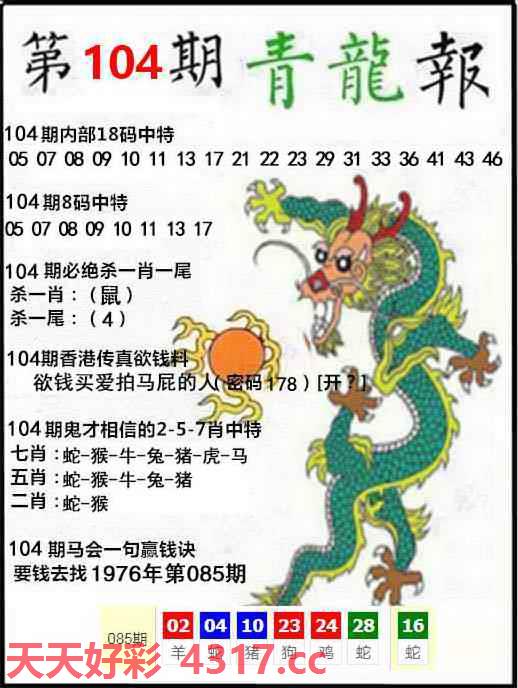 第104期 青龍報
104期内部18码中特
05 07 08 09 10 11 13 17 21 22 23 29 31 33 36 41 43 46
104期8码中特
05 07 08 09 10 11 13 17
104期必绝杀一肖一尾
杀一肖：（鼠）
杀一尾：（4）
104期香港传真欲钱料
欲钱买爱拍马屁的人(密码178)[开?]
104期鬼才相信的2-5-7肖中特
七肖：蛇-猴-牛-兔-猪-虎-马
五肖：蛇-猴-牛-兔-猪
二肖：蛇-猴
104期马会一句赢钱诀
要钱去找1976年第085期
085期 02 04 10 23 24 28 16
羊 蛇 猪 狗 鸡 蛇 蛇
天天好彩 4317.cc